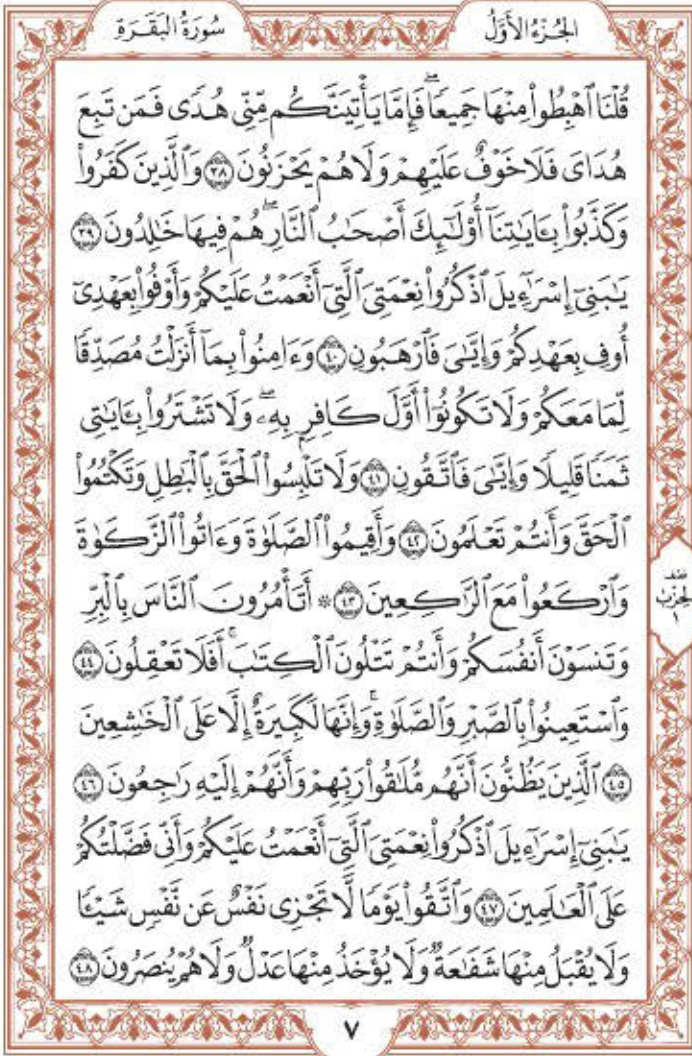 سُورَةُ البَقَرَةِ
الجُزْءُ الأَوَّلُ
قُلْنَا ٱهْبِطُوا۟ مِنْهَا جَمِيعًاۖ فَإِمَّا يَأْتِيَنَّكُم مِّنِّى هُدًى فَمَن تَبِعَ
هُدَاىَ فَلَا خَوْفٌ عَلَيْهِمْ وَلَا هُمْ يَحْزَنُونَ ٣٨ وَٱلَّذِينَ كَفَرُوا۟
وَكَذَّبُوا۟ بِـَٔايَـٰتِنَآ أُو۟لَـٰٓئِكَ أَصْحَـٰبُ ٱلنَّارِۖ هُمْ فِيهَا خَـٰلِدُونَ ٣٩
يَـٰبَنِىٓ إِسْرَٰٓءِيلَ ٱذْكُرُوا۟ نِعْمَتِىَ ٱلَّتِىٓ أَنْعَمْتُ عَلَيْكُمْ وَأَوْفُوا۟ بِعَهْدِىٓ
أُوفِ بِعَهْدِكُمْ وَإِيَّـٰىَ فَٱرْهَبُونِ ٤٠ وَءَامِنُوا۟ بِمَآ أَنزَلْتُ مُصَدِّقًا
لِّمَا مَعَكُمْ وَلَا تَكُونُوٓا۟ أَوَّلَ كَافِرٍۭ بِهِۦۖ وَلَا تَشْتَرُوا۟ بِـَٔايَـٰتِى
ثَمَنًا قَلِيلًا وَإِيَّـٰىَ فَٱتَّقُونِ ٤١ وَلَا تَلْبِسُوا۟ ٱلْحَقَّ بِٱلْبَـٰطِلِ وَتَكْتُمُوا۟
ٱلْحَقَّ وَأَنتُمْ تَعْلَمُونَ ٤٢ وَأَقِيمُوا۟ ٱلصَّلَوٰةَ وَءَاتُوا۟ ٱلزَّكَوٰةَ
وَٱرْكَعُوا۟ مَعَ ٱلرَّٰكِعِينَ ٤٣ ۞ أَتَأْمُرُونَ ٱلنَّاسَ بِٱلْبِرِّ
نصف
الحزب
١
وَتَنسَوْنَ أَنفُسَكُمْ وَأَنتُمْ تَتْلُونَ ٱلْكِتَـٰبَۚ أَفَلَا تَعْقِلُونَ ٤٤
وَٱسْتَعِينُوا۟ بِٱلصَّبْرِ وَٱلصَّلَوٰةِۚ وَإِنَّهَا لَكَبِيرَةٌ إِلَّا عَلَى ٱلْخَـٰشِعِينَ
٤٥ ٱلَّذِينَ يَظُنُّونَ أَنَّهُم مُّلَـٰقُوا۟ رَبِّهِمْ وَأَنَّهُمْ إِلَيْهِ رَٰجِعُونَ ٤٦
يَـٰبَنِىٓ إِسْرَٰٓءِيلَ ٱذْكُرُوا۟ نِعْمَتِىَ ٱلَّتِىٓ أَنْعَمْتُ عَلَيْكُمْ وَأَنِّى فَضَّلْتُكُمْ
عَلَى ٱلْعَـٰلَمِينَ ٤٧ وَٱتَّقُوا۟ يَوْمًا لَّا تَجْزِى نَفْسٌ عَن نَّفْسٍ شَيْـًٔا
وَلَا يُقْبَلُ مِنْهَا شَفَـٰعَةٌ وَلَا يُؤْخَذُ مِنْهَا عَدْلٌ وَلَا هُمْ يُنصَرُونَ ٤٨
٧